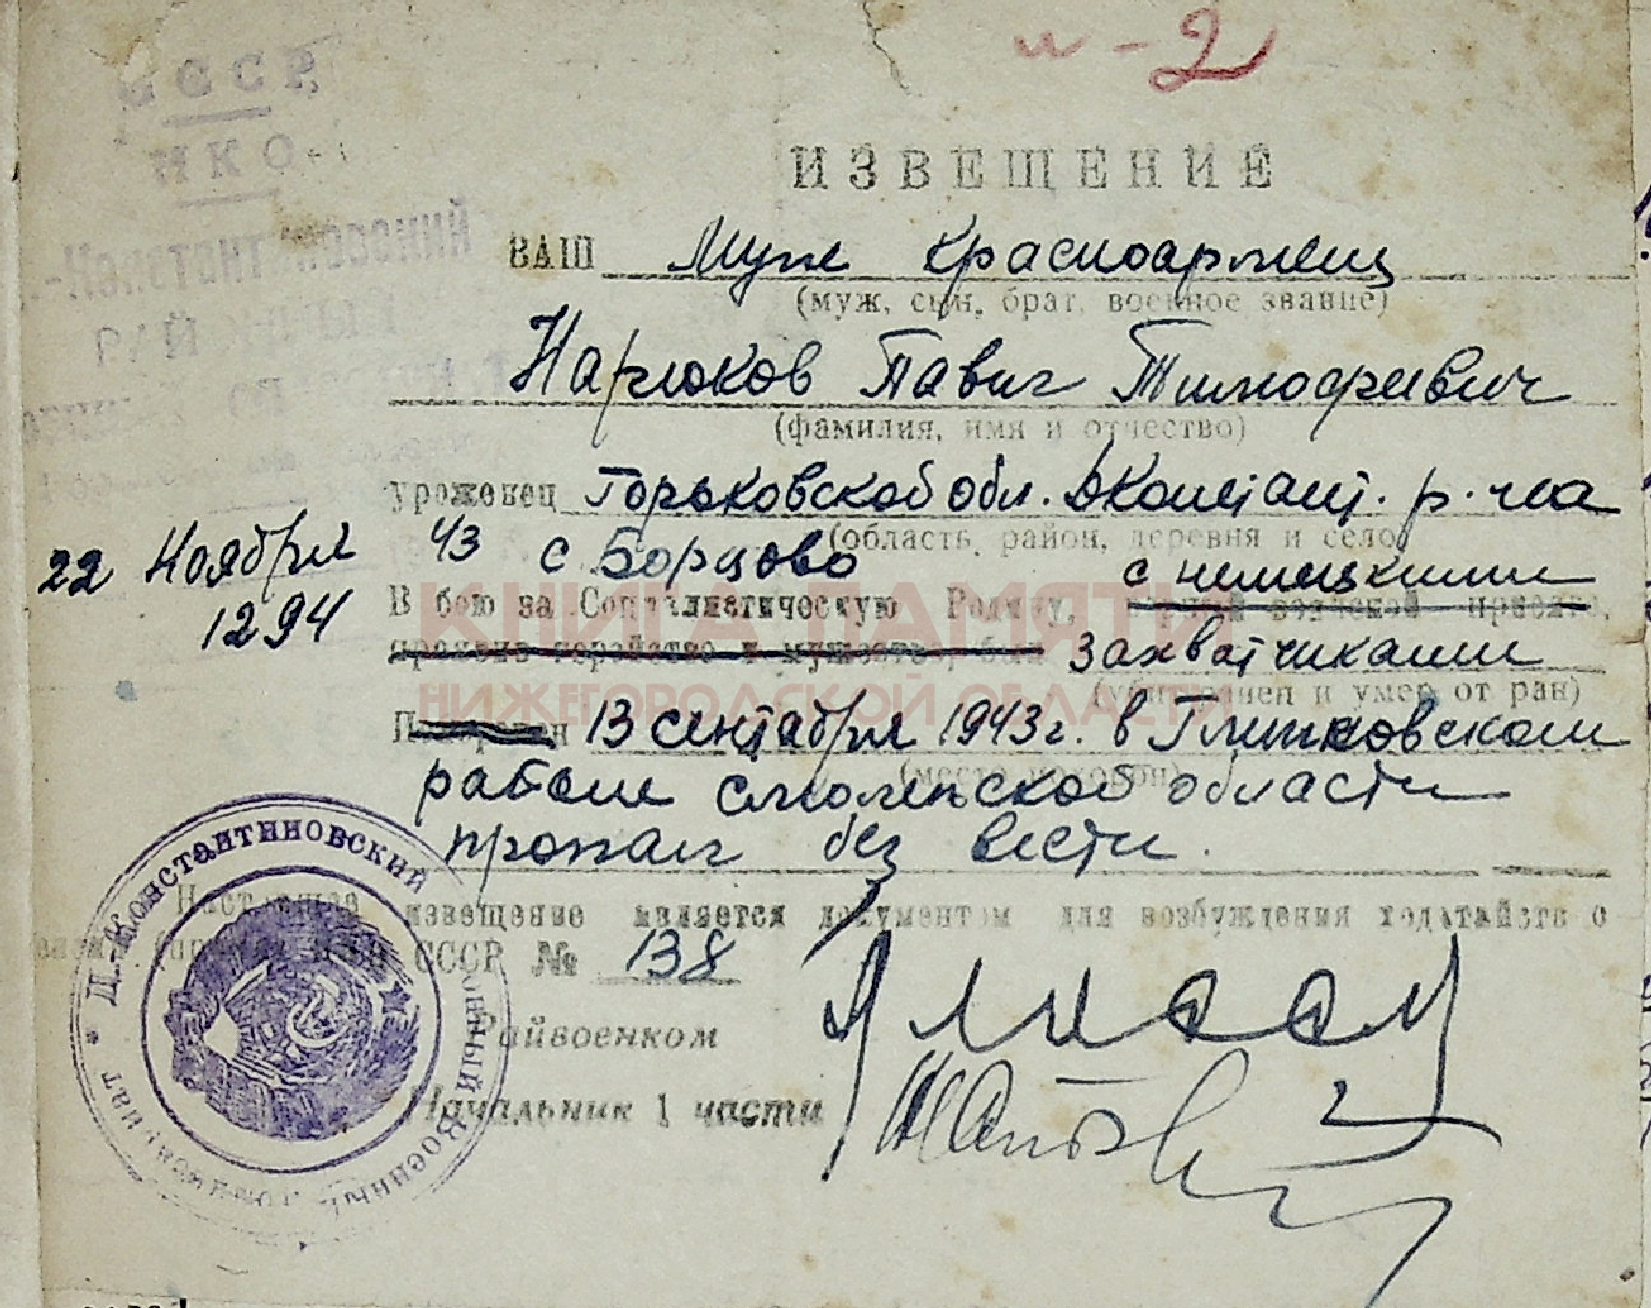 и - 2
СССР
НКО
ИЗВЕЩЕНИЕ
ВАШ муж красноармеец
(муж, сын, брат, военное звание)
Нарюков Павил Тимофеевич
(фамилия, имя и отчество)
уроженец Горьковской обл. ДКонстант. р-на
(область, район, деревня и село)
22 Ноября 43
1294
с Борцово
с немецкими
В бою за Социалистическую Родину,
захватчиками
(убит, ранен и умер от ран)
13 сентября 1943 г. в Глинковском
(место похорон)
районе Смоленской области
пропал без вести.
Настоящее извещение является документом для возбуждения ходатайств о
СССР № 138
Райвоенком
Начальник 1 части
Д.-Константиновский Районный Военный Комиссариат
КНИГА ПАМЯТИ
НИЖЕГОРОДСКОЙ ОБЛАСТИ